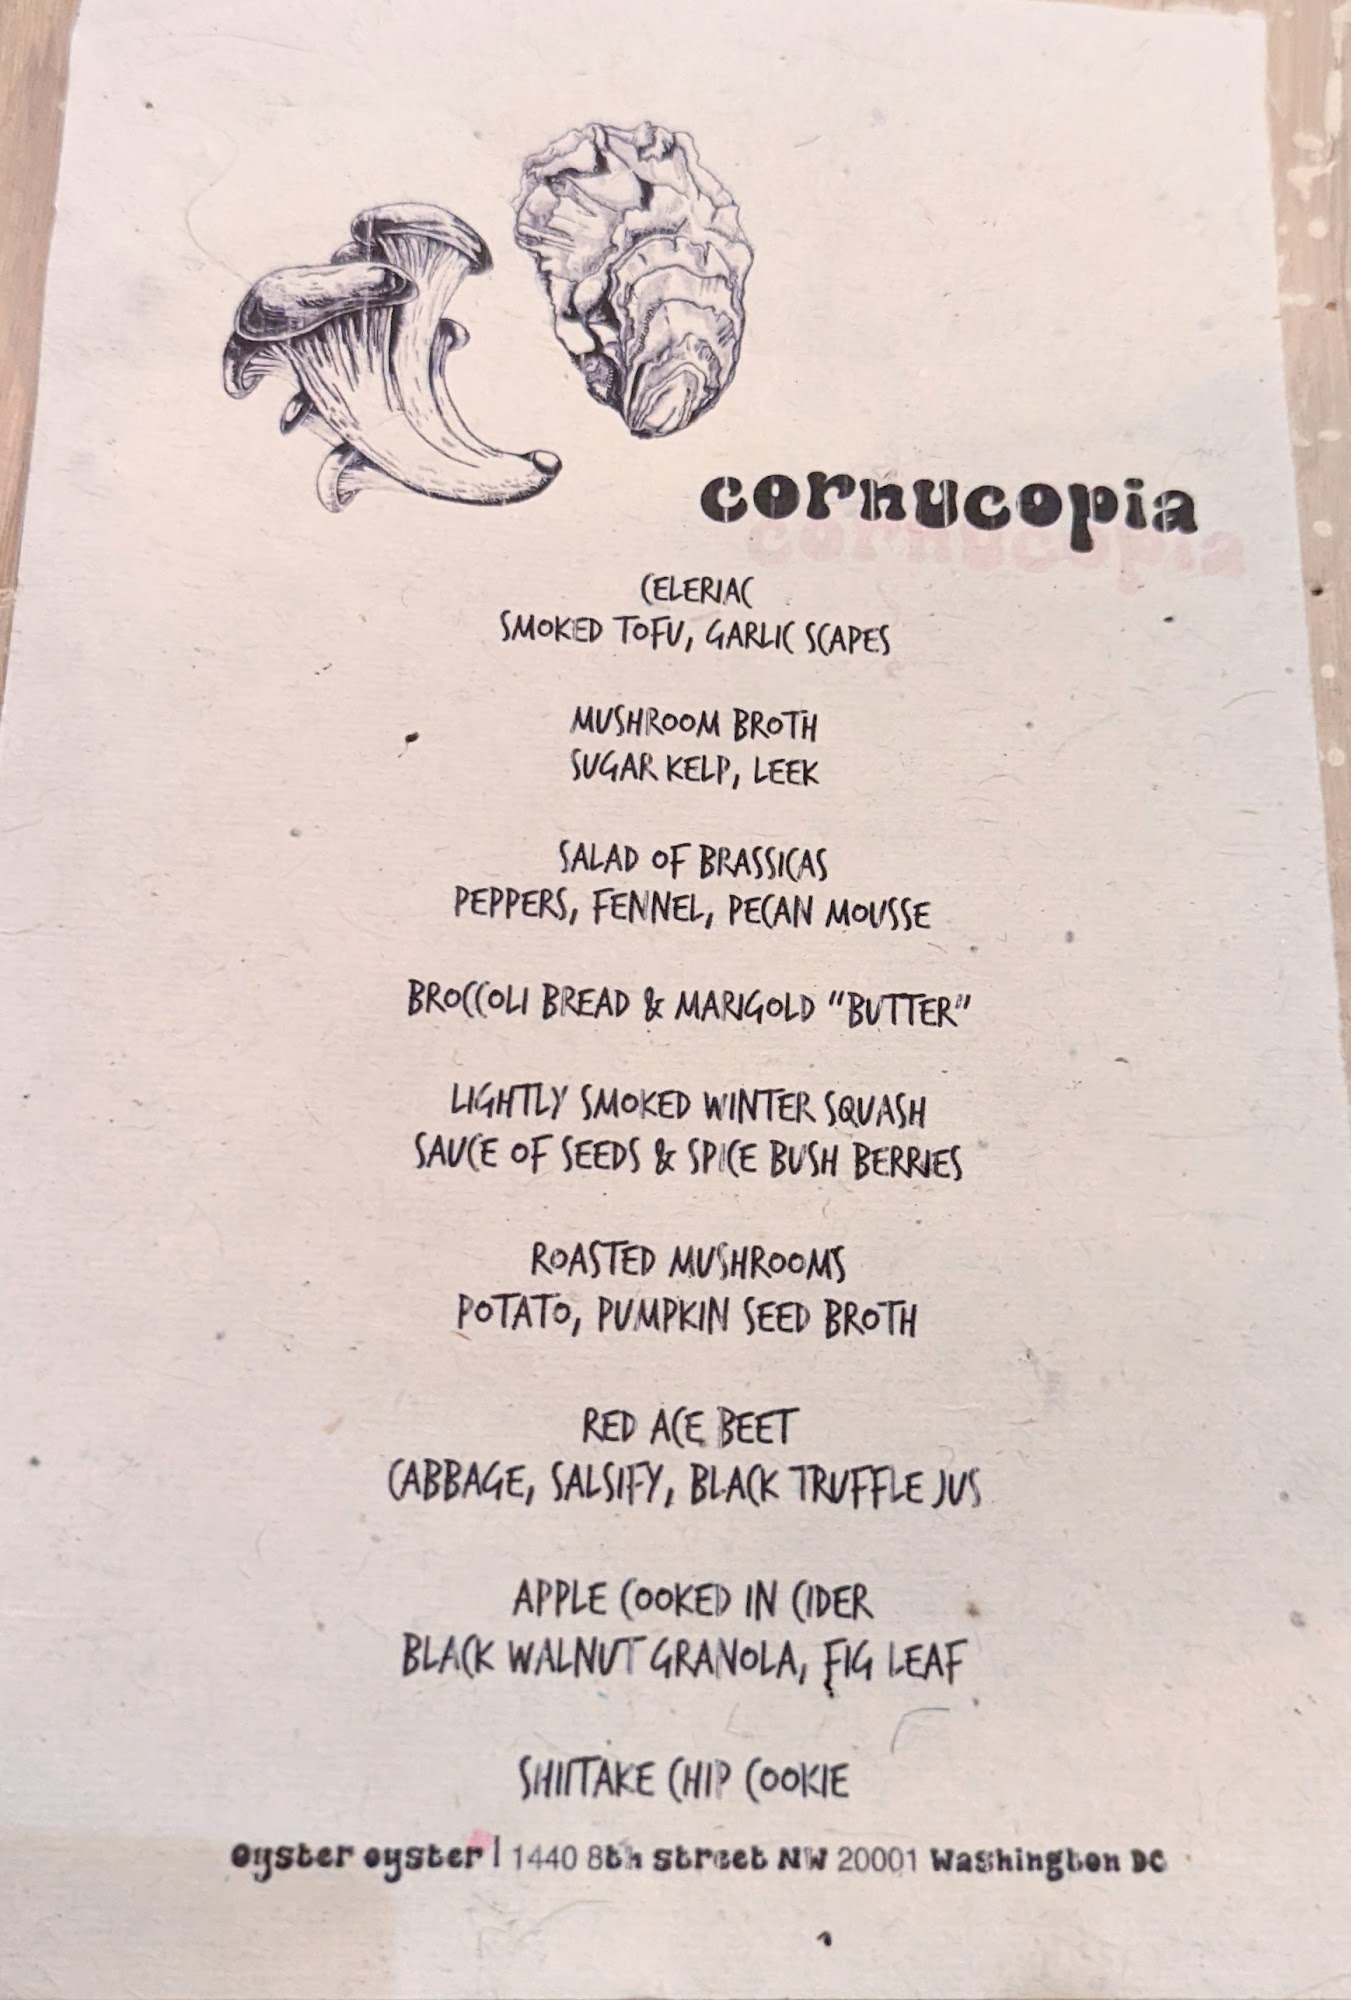 cornucopia
CELERIAC
SMOKED TOFU, GARLIC SCAPES
MUSHROOM BROTH
SUGAR KELP, LEEK
SALAD OF BRASSICAS
PEPPERS, FENNEL, PECAN MOUSSE
BROCCOLI BREAD & MARIGOLD "BUTTER"
LIGHTLY SMOKED WINTER SQUASH
SAUCE OF SEEDS & SPICE BUSH BERRIES
ROASTED MUSHROOMS
POTATO, PUMPKIN SEED BROTH
RED ACE BEET
CABBAGE, SALSIFY, BLACK TRUFFLE JUS
APPLE COOKED IN CIDER
BLACK WALNUT GRANOLA, FIG LEAF
SHIITAKE CHIP COOKIE
oyster oyster | 1440 8th street NW 20001 Washington DC